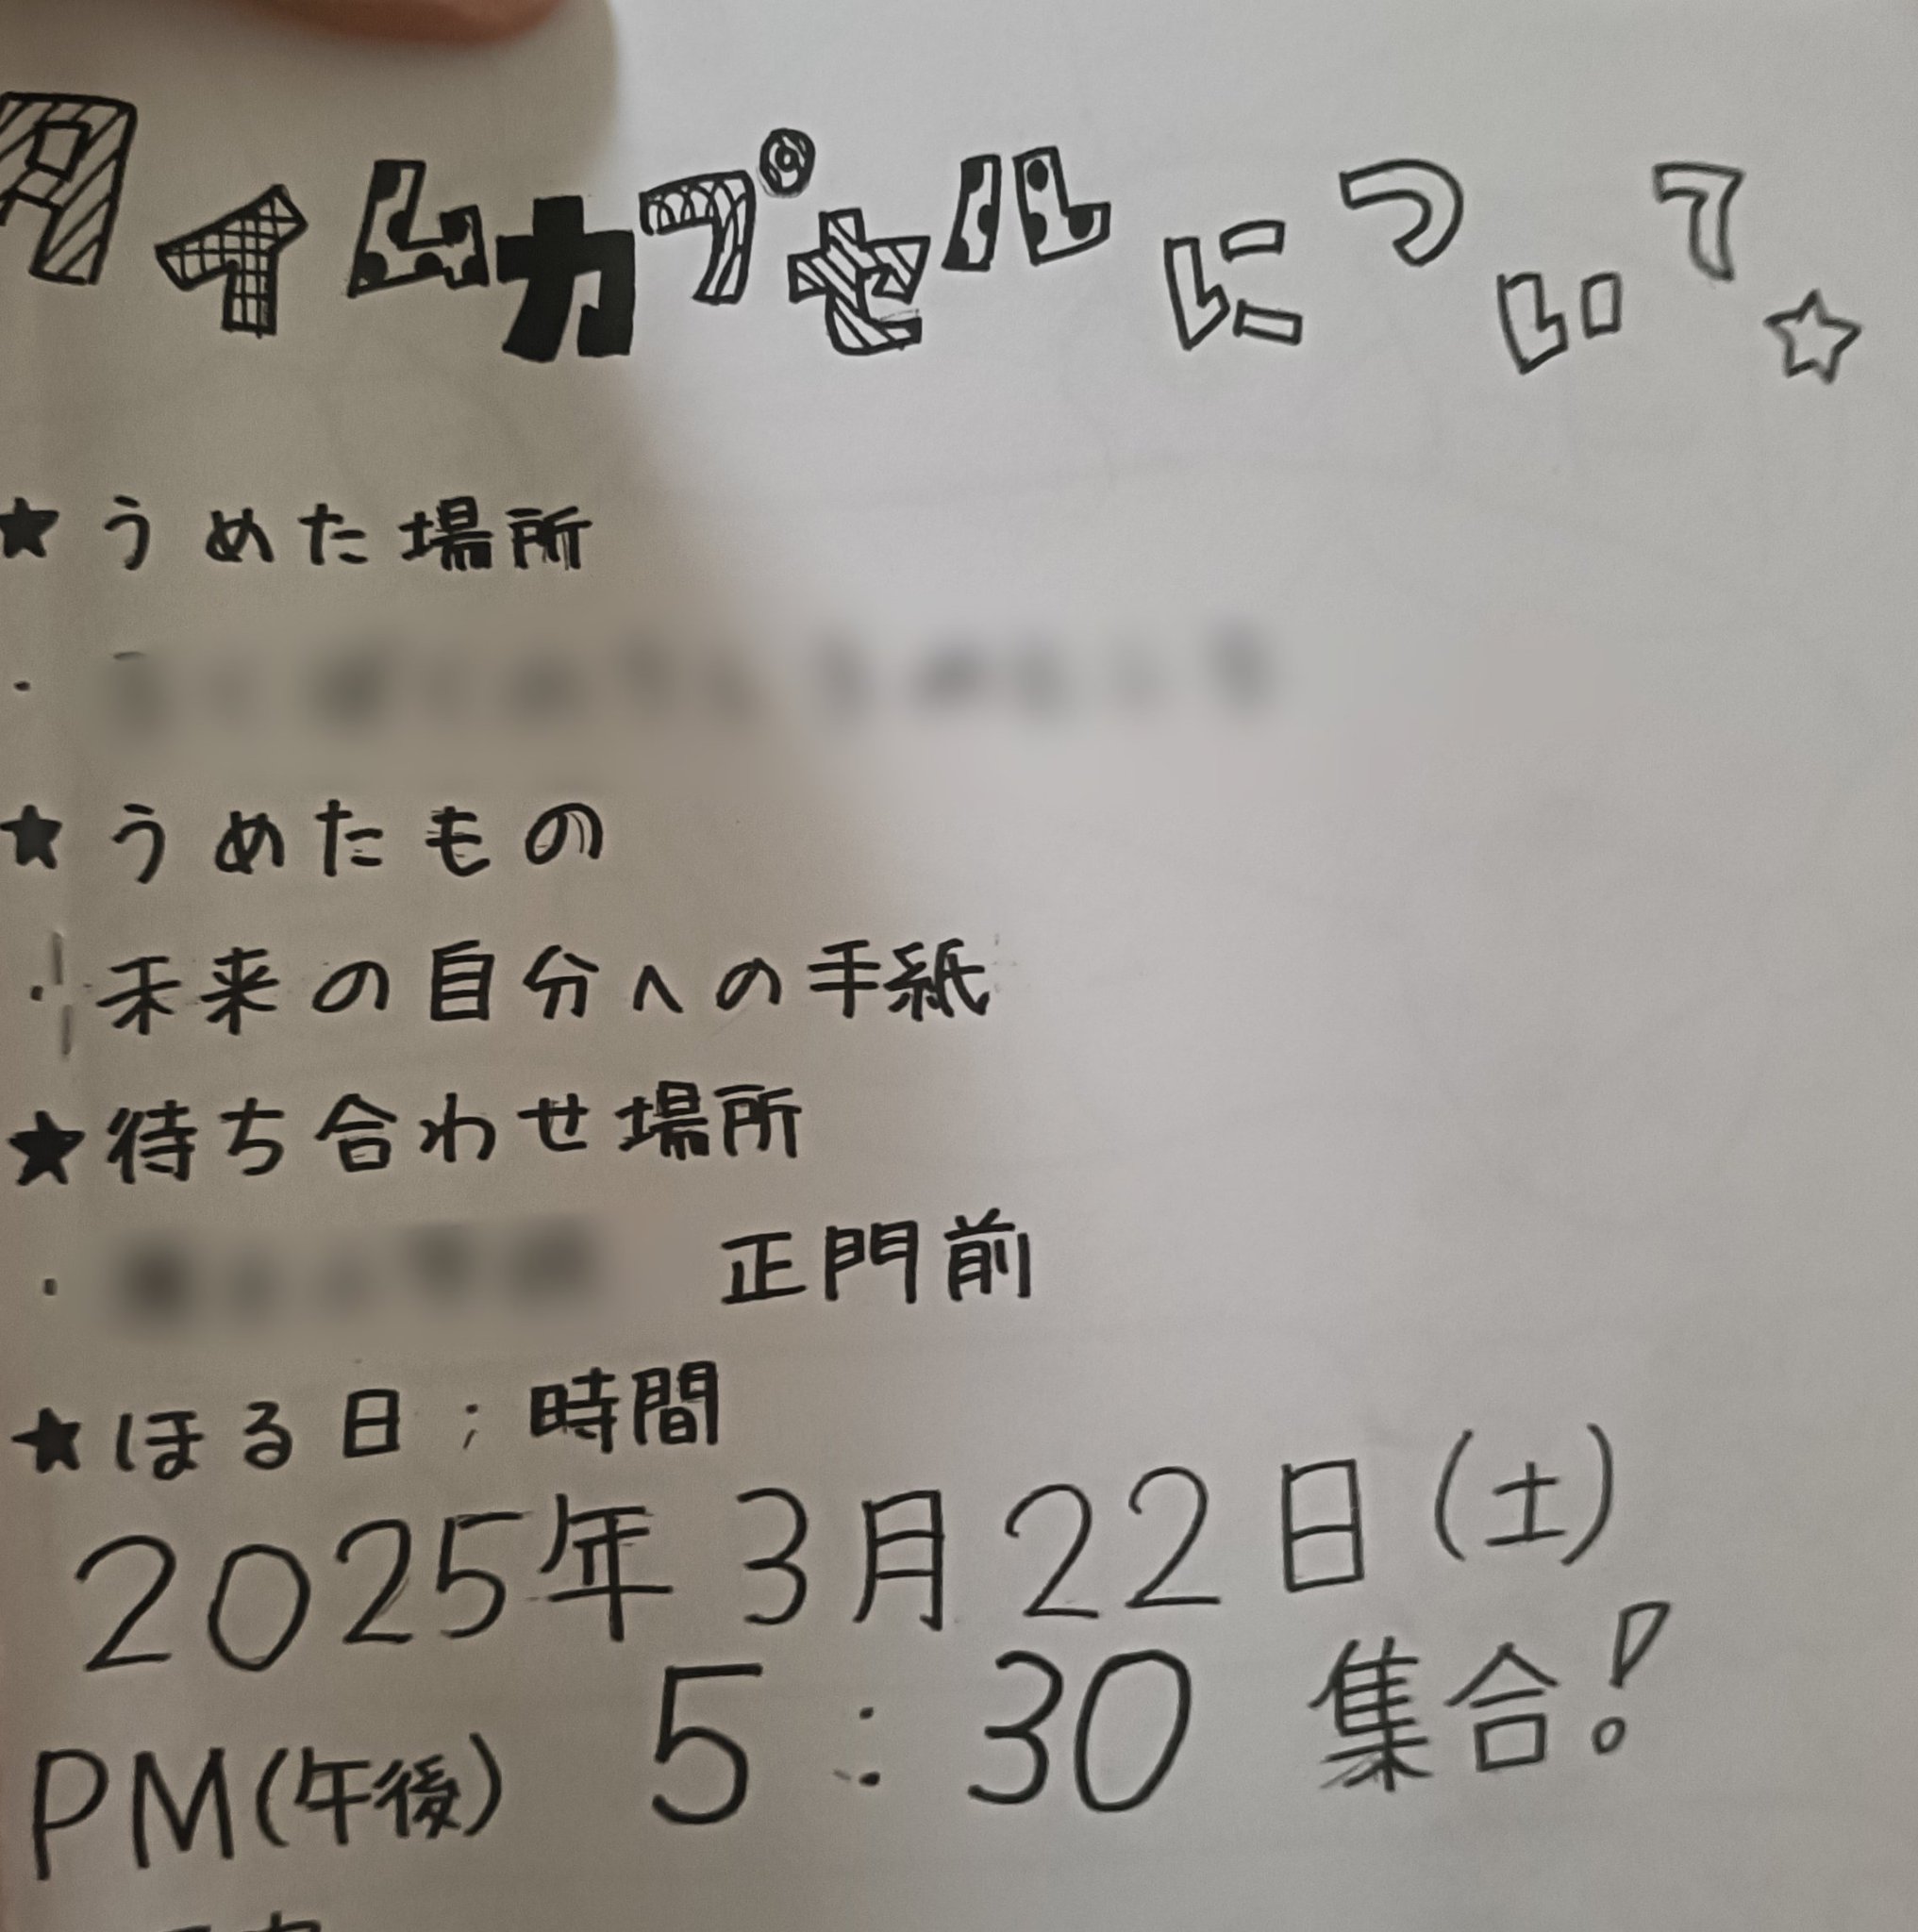 タイムカプセルについて☆
★うめた場所
★うめたもの
・未来の自分への手紙
★待ち合わせ場所
・ 正門前
★ほる日;時間
2025年3月22日(土)
PM(午後) 5:30 集合!